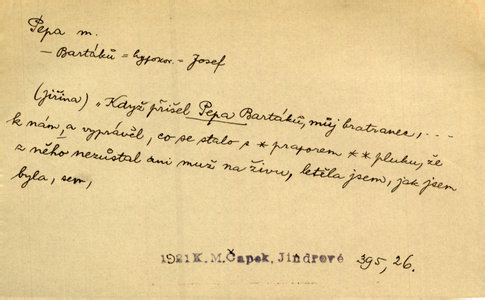 Pepa m.
— Bartáků = hypokor. — Josef
(Jiřina) „Když přišel Pepa Bartáků, můj bratranec, . - - -
k nám, a vyprávěl, co se stalo s * praporem * * pluku, že
z něho nezůstal ani muž na živu, letěla jsem, jak jsem
byla, sem,
1921 K. M. Čapek, Jindrové 395, 26.